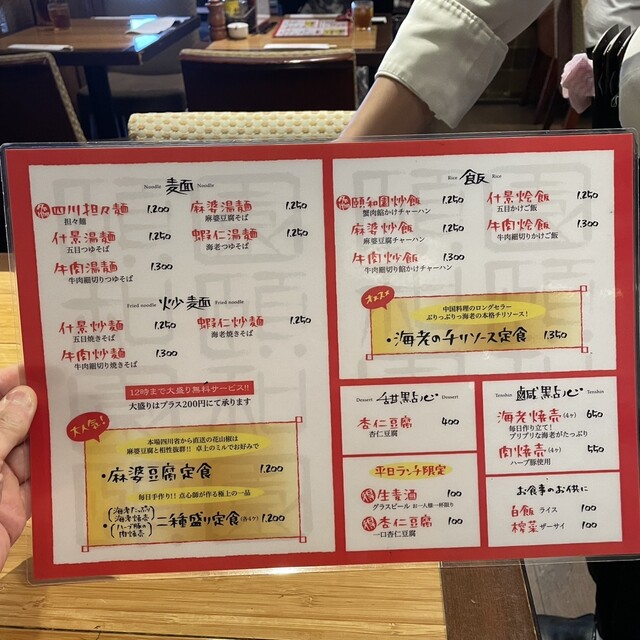 Noodle 麺 Noodle
四川担々麺 1.200
担々麺
什景湯麺 1.250
五目つゆそば
牛肉湯麺 1.300
牛肉細切りつゆそば
麻婆湯麺 1.250
麻婆豆腐そば
蝦仁湯麺 1.250
海老つゆそば
Fried noodle 炒麺 Fried noodle
什景炒麺 1.250
五目焼きそば
牛肉炒麺 1.300
牛肉細切り焼きそば
蝦仁炒麺 1.250
海老焼きそば
12時まで大盛り無料サービス!!
大盛りはプラス200円にて承ります
大人気!
本場四川省から直送の花山椒は
麻婆豆腐と相性抜群!! 卓上のミルでお好みで
・麻婆豆腐定食 1.200
毎日手作り!! 点心師が作る極上の一品
海老たっぷり
海老焼売
ハーブ豚の
肉焼売
二種盛り定食(各4ケ) 1.200
Rice 飯 Rice
頤和園炒飯 1.250
蟹肉餡かけチャーハン
麻婆炒飯 1.250
麻婆豆腐チャーハン
牛肉炒飯 1.300
牛肉細切り餡かけチャーハン
什景烩飯 1.250
五目かけご飯
牛肉烩飯 1.300
牛肉細切りかけご飯
オススメ
中国料理のロングセラー
ぷりっぷりっ海老の本格チリソース!
・海老のチリソース定食 1.350
Dessert 甜點心 Dessert
杏仁豆腐 400
杏仁豆腐
平日ランチ限定
得 生麦酒 100
グラスビール お一人様一杯限り
得 杏仁豆腐 100
一口杏仁豆腐
Tenshin 鹹點心 Tenshin
海老焼売(4ケ) 650
毎日作り立て!
プリプリな海老がたっぷり
肉焼売(4ケ) 550
ハーブ豚使用
お食事のお供に
白飯 ライス 100
榨菜 ザーサイ 100